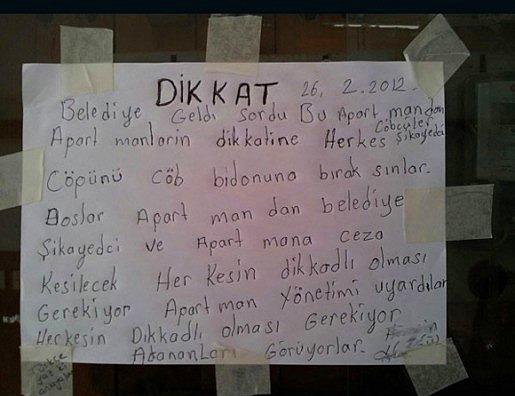 DİKKAT 26. 2.2012.
Belediye Geldi sordu Bu Apart mandan
Cöbcüler
Apart manların dikkatine Herkes Şikayedci
Cöpünü cöb bidonuna bırak sınlar.
Boslar Apart man dan belediye
Şikayedci ve Apart mana ceza
Kesilecek Her Kesin dikkadlı olması
Gerekiyor Apart man Yönetimi uyardılar
Herkesin Dikkadlı olması Gerekiyor
Görüyorlar.